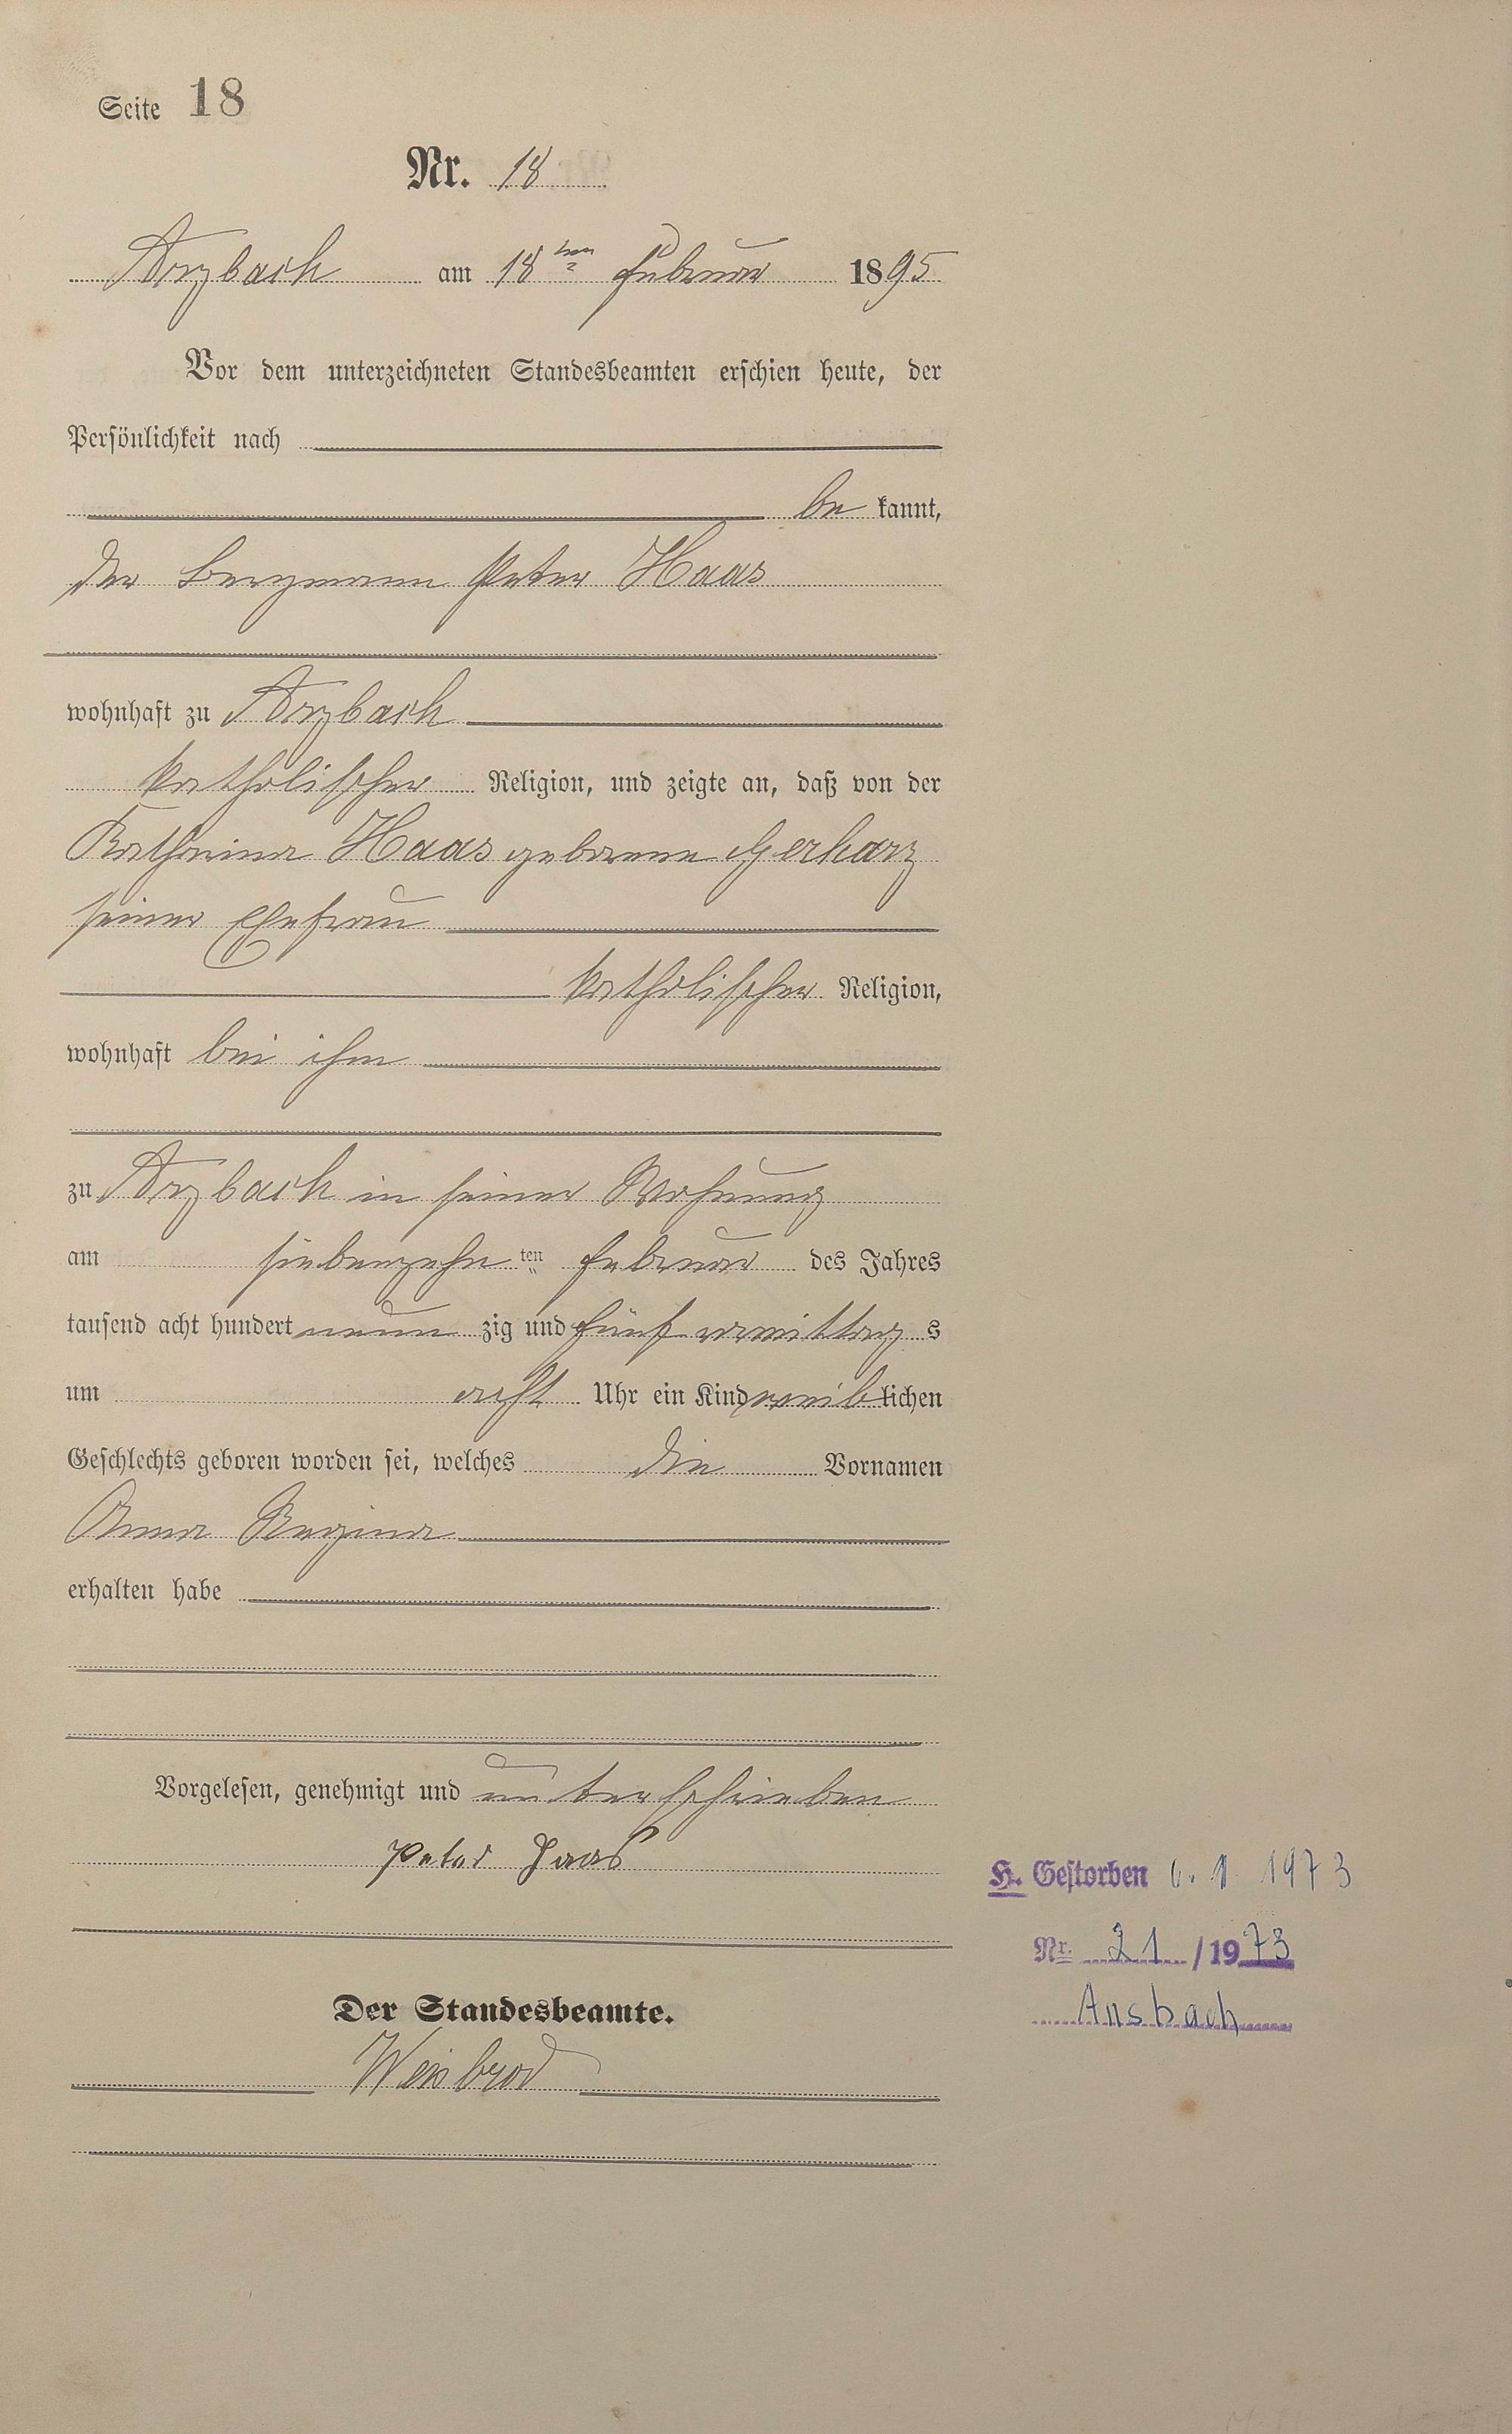 Seite 18
Nr. 18
Arzbach am 18ten Februar 1895
Vor dem unterzeichneten Standesbeamten erschien heute, der
Persönlichkeit nach
be kannt,
der Bergmann Peter Haas
wohnhaft zu Arzbach
katholischer Religion, und zeigte an, daß von der
Katharina Haas geborene Gerharz
seiner Ehefrau
katholischer Religion,
wohnhaft bei ihm
zu Arzbach in seiner Wohnung
am siebenzehn ten Februar des Jahres
tausend acht hundert neun zig und fünf vormittag s
um acht Uhr ein Kind weib lichen
Geschlechts geboren worden sei, welches die Vornamen
Anna Regina
erhalten habe
Vorgelesen, genehmigt und unterschrieben
Peter Haas
H. Gestorben 6. 1. 1973
Nr. 21 / 1973
Ansbach
Der Standesbeamte.
Weisbrod